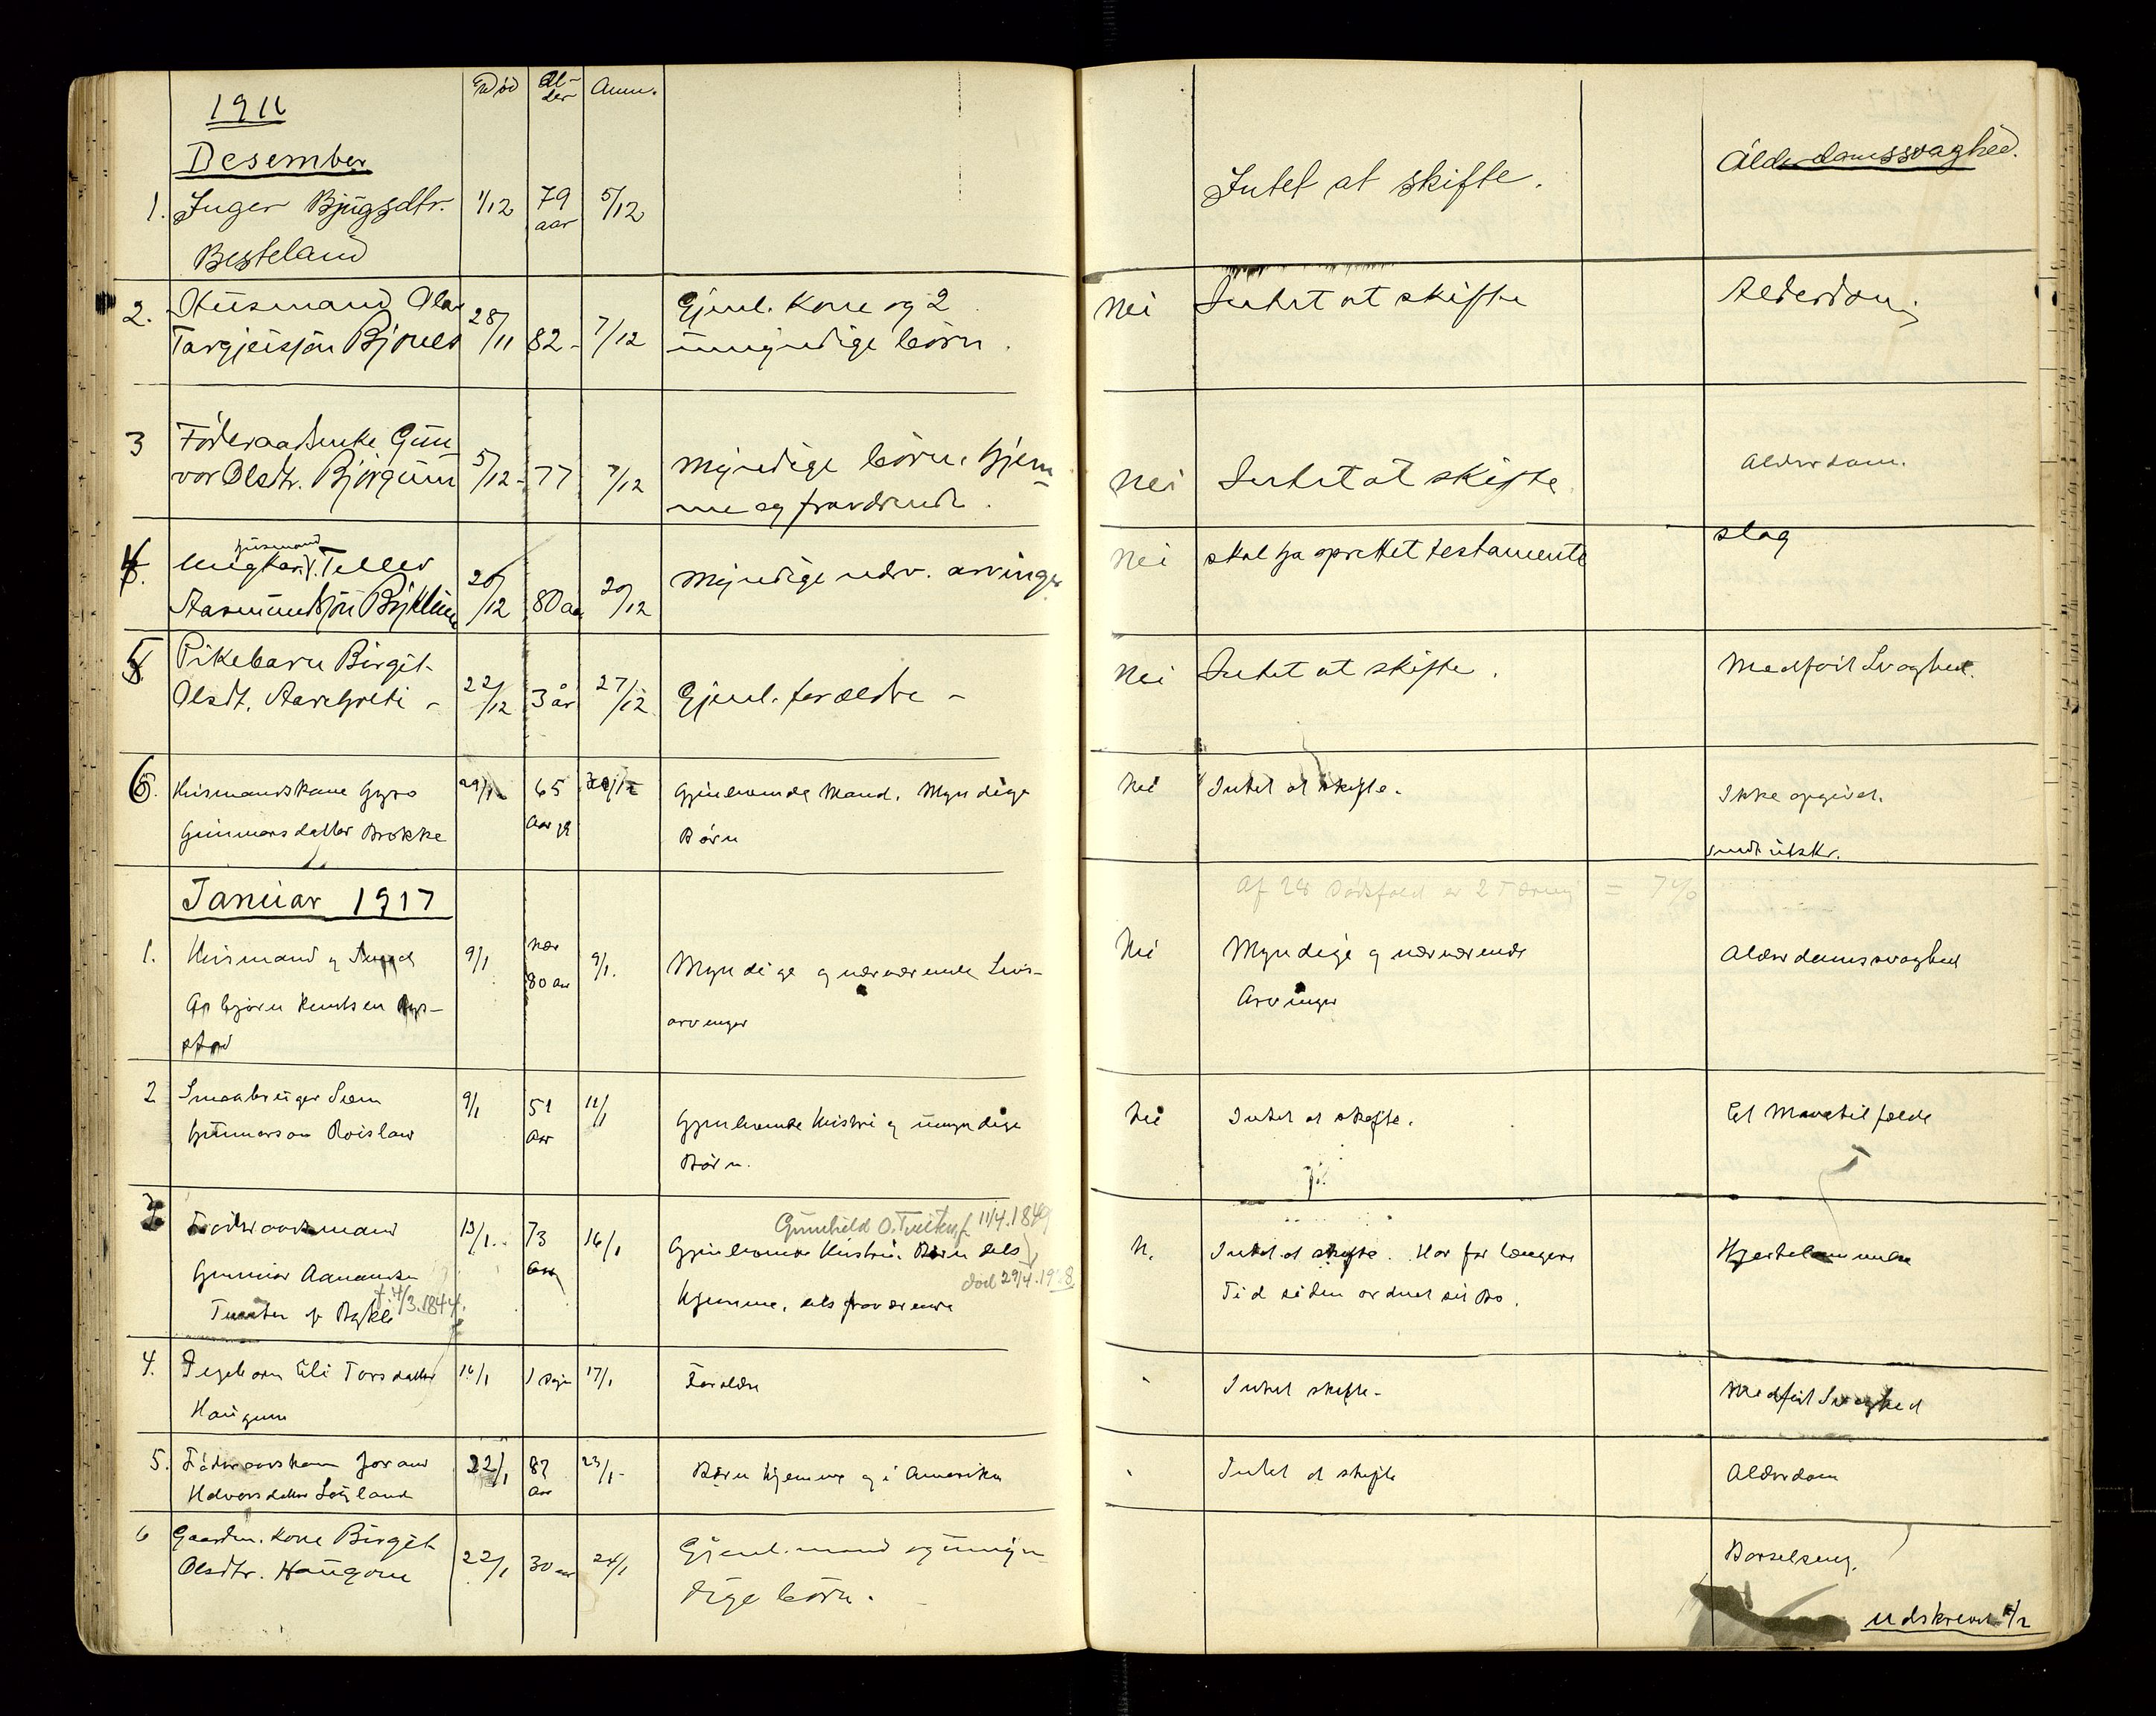 1916
Død Al-der Anm.
Desember
1. Inger Bjugsdtr. 1/12 79 aar 5/12 Intet at skifte. Alderdomssvaghed.
Besteland
2. Husmand Olav 28/11 82 - 7/12 Gjenl. Kone og 2 Nei Intet at skifte Alderdom.
Targjeissøn Bjones umyndige børn.
3 Føderaadsenke Gun-
vor Olsdtr. Bjørgum 5/12 - 77 7/12 Myndige børn. hjem- Nei Intet at skifte Alderdom.
me og fraværende.
4. Ungkar. husmand Tellev 20/12 80 aar 20/12 Myndige nærv. arvinger Nei skal ha oprettet testamente slag
Aasmundsøn
5 Pikebarn Birgit 22/12 3 år 27/12 Gjenl. forældre - Nei Intet at skifte. Medføit Svaghed.
Olsdt.
6. Husmandskone Gyro 29/12 65 Gjenlevende Mand. Myndige Nei Intet at skifte. Ikke opgivet.
Gunnarsdatter Brokke Aar gl Børn
utskr.
Januar 1917
Af 28 Dødsfald er 2 Tæring = 7%
1. Husmand og 9/1 nær 80 aar 9/1. Myndige og nærværende Livs- Nei Myndige og nærværende Alderdomssvaghed
Asbjørn Knutsen Rys- arvinger Arvinger
stad
2 Smaabruger Svein 9/1 51 Aar 11/1 Gjenlevende Hustru og umyndige Nei Intet at skifte. Et Mavetilfælde
Gunnarson Roislan Børn.
3 Føderaadsmand 13/1 73 Aar 16/1 Gjenlevende Hustru. Børn dels N. Intet at skifte. Har for længere Hjertelammelse
Gunnar Aanundsen hjemme, dels fraværende Tid siden ordnet sit Bo.
af Bykle f. 4/3.1844.
Gunhild O. f. 11/4.1849
død 29/4.1928
4. Pigebarn Eli Torsdatter 16/1 1 Dage 17/1 Forældre " Intet skifte - Medføit Svaghed
Haugum
5. Føderaadskone Joran 22/1 82 Aar 23/1 - Børn hjemme og i Amerika " Intet at skifte Alderdom
Halvorsdatter
6 Gaardm. kone Birgit 22/1 30 aar 24/1 Gjenl. mand og umyn- Barselseng.
Olsdtr. Haugum dige børn.
Udskrevet